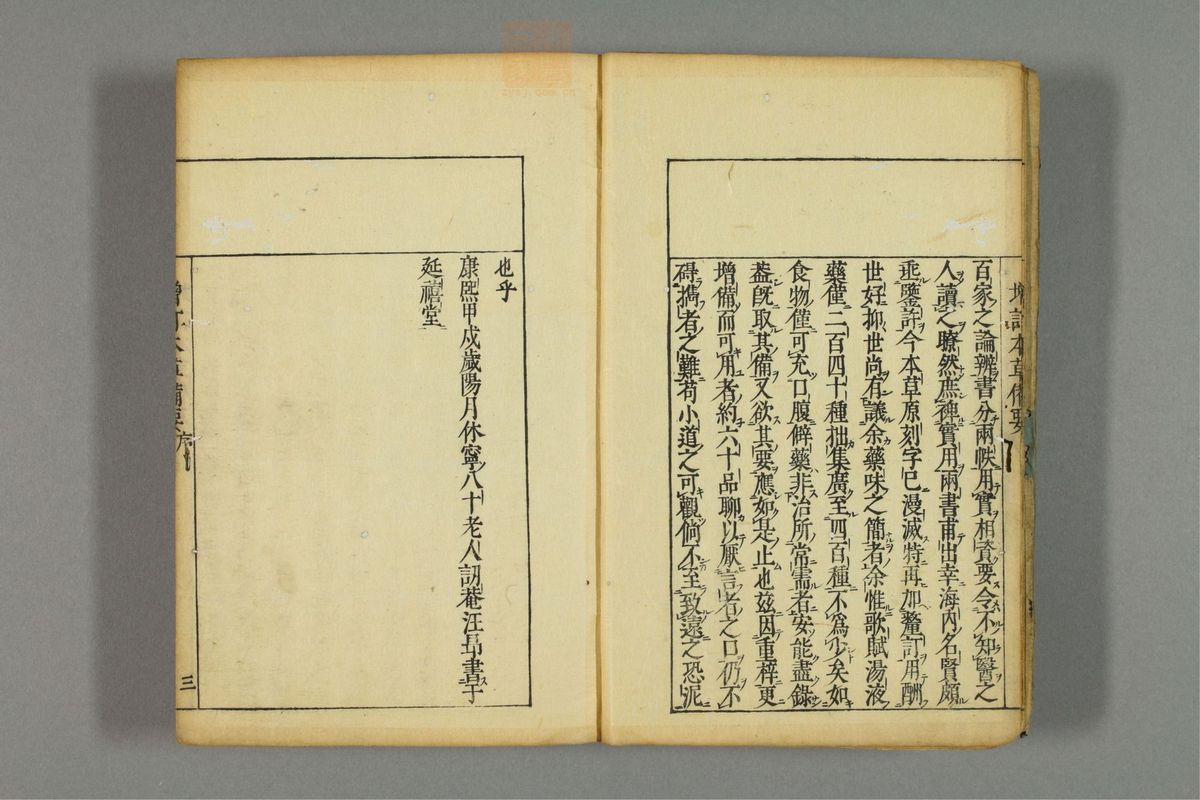 百家之論辨書分兩帙用實相資要令不知醫之
人讀之瞭然庶裨實用兩書甫出幸海內名賢頗
垂鑒許今本草原刻字已漫滅特再加釐訂用酬
世好抑世尚有議余藥味之簡者余惟歌賦湯液
藥僅二百四十種拙集廣至四百種不爲少矣如
食物僅可充口腹僻藥非治所常需者安能盡錄
葢旣取其備又欲其要應如是止也玆因重梓更
增備而可用者約六十品聊以厭言者之口仍不
碍擕者之難苟小道之可觀倘不至致遠之恐泥
也乎
康熙甲戌歲陽月休寧八十老人訒菴汪昂書于
延禧堂
三
zysj.com.cn